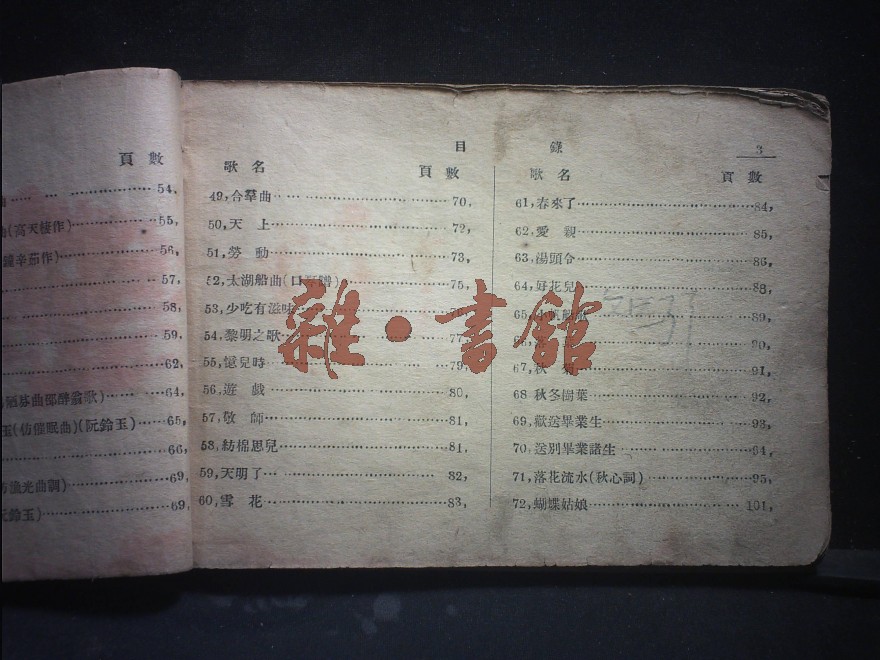 頁 數
54,
(高天棲作)……55,
鍾辛茹作)……56,
57,
58,
59,
62,
64,
玉(仿催眠曲)(阮鈴玉)……65,
66,
光曲調)……69,
阮鈴玉)……69,
目 錄 3
歌 名 頁 數
49,合羣曲……70,
50,天 上……72,
51,勞 動……73,
52,太湖船曲(口譜)……75,
53,少吃有滋味
54,黎明之歌……77
55,憶兒時……79,
56,遊 戲……80,
57,敬 師……81,
58,紡棉思兒……81,
59,天明了……82,
60,雪 花……83,
歌 名 頁 數
61,春來了……84,
62,愛 親……85,
63,湯頭令……86,
64,好花兒……88,
65……89,
90,
67,秋……91,
68 秋冬樹葉……92,
69,歡送畢業生……93,
70,送別畢業諸生……64,
71,落花流水(秋心詞)……95,
72,蝴蝶姑娘……101,
雜·書館